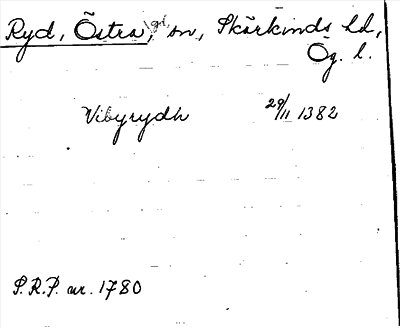 Ryd, Östra, gd, sn, Skärkinds hd,
Ög. l.
Vibyrydh 29/11 1382
S.R.P. nr. 1780